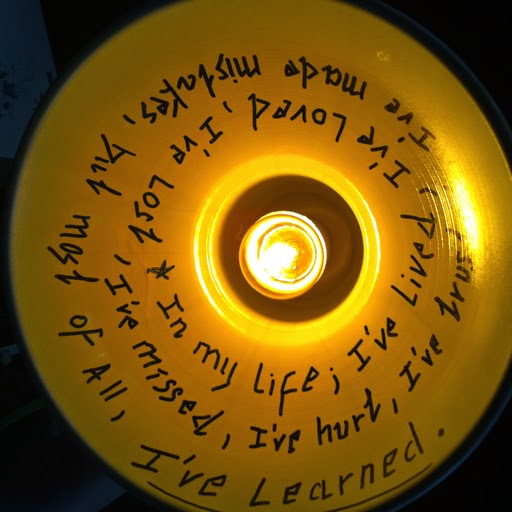 * In my Life; I've Lived, I've Loved, I've Lost, I've missed, I've hurt, I've I've made mistakes, but most of All, I've Learned.